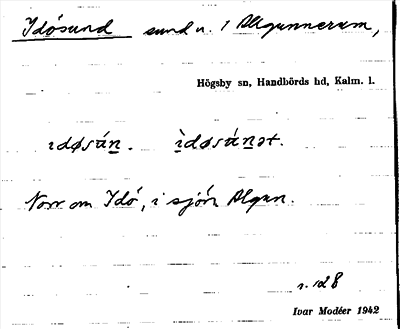 Idösund sund n. i Allgunneram,
Högsby sn, Handbörds hd, Kalm. l.
ıdøsán̲. ı̲̀døsán̲ət.
Norr om Idö, i sjön Allgun.
s. 128
Ivar Modéer 1942